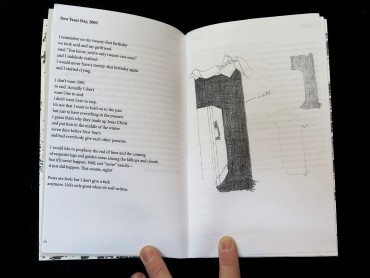 New Years Day, 2001
I remember on my twenty-first birthday
we took acid and my girlfriend
said "You know, you're only twenty once now"
and I suddenly realized
I would never have a twenty-first birthday again
and I started crying.
I don't want 2001
to end. Actually I don't
want One to end.
I don't want Zero to stop.
It's not that I want to hold on to the past
but just to have everything in the present.
I guess that's why they made up Jesus Christ
and put him in the middle of the winter
seven days before New Year's
and had everybody give each other presents.
I would like to prophesy the end of time and the coming
of separate legs and golden eaves among the hilltops and clouds
but it'll never happen. Well, not "never" exactly—
it just did happen. That counts, right?
Poets are fools but I don't give a fuck
anymore. Life's only good when it's well-written.